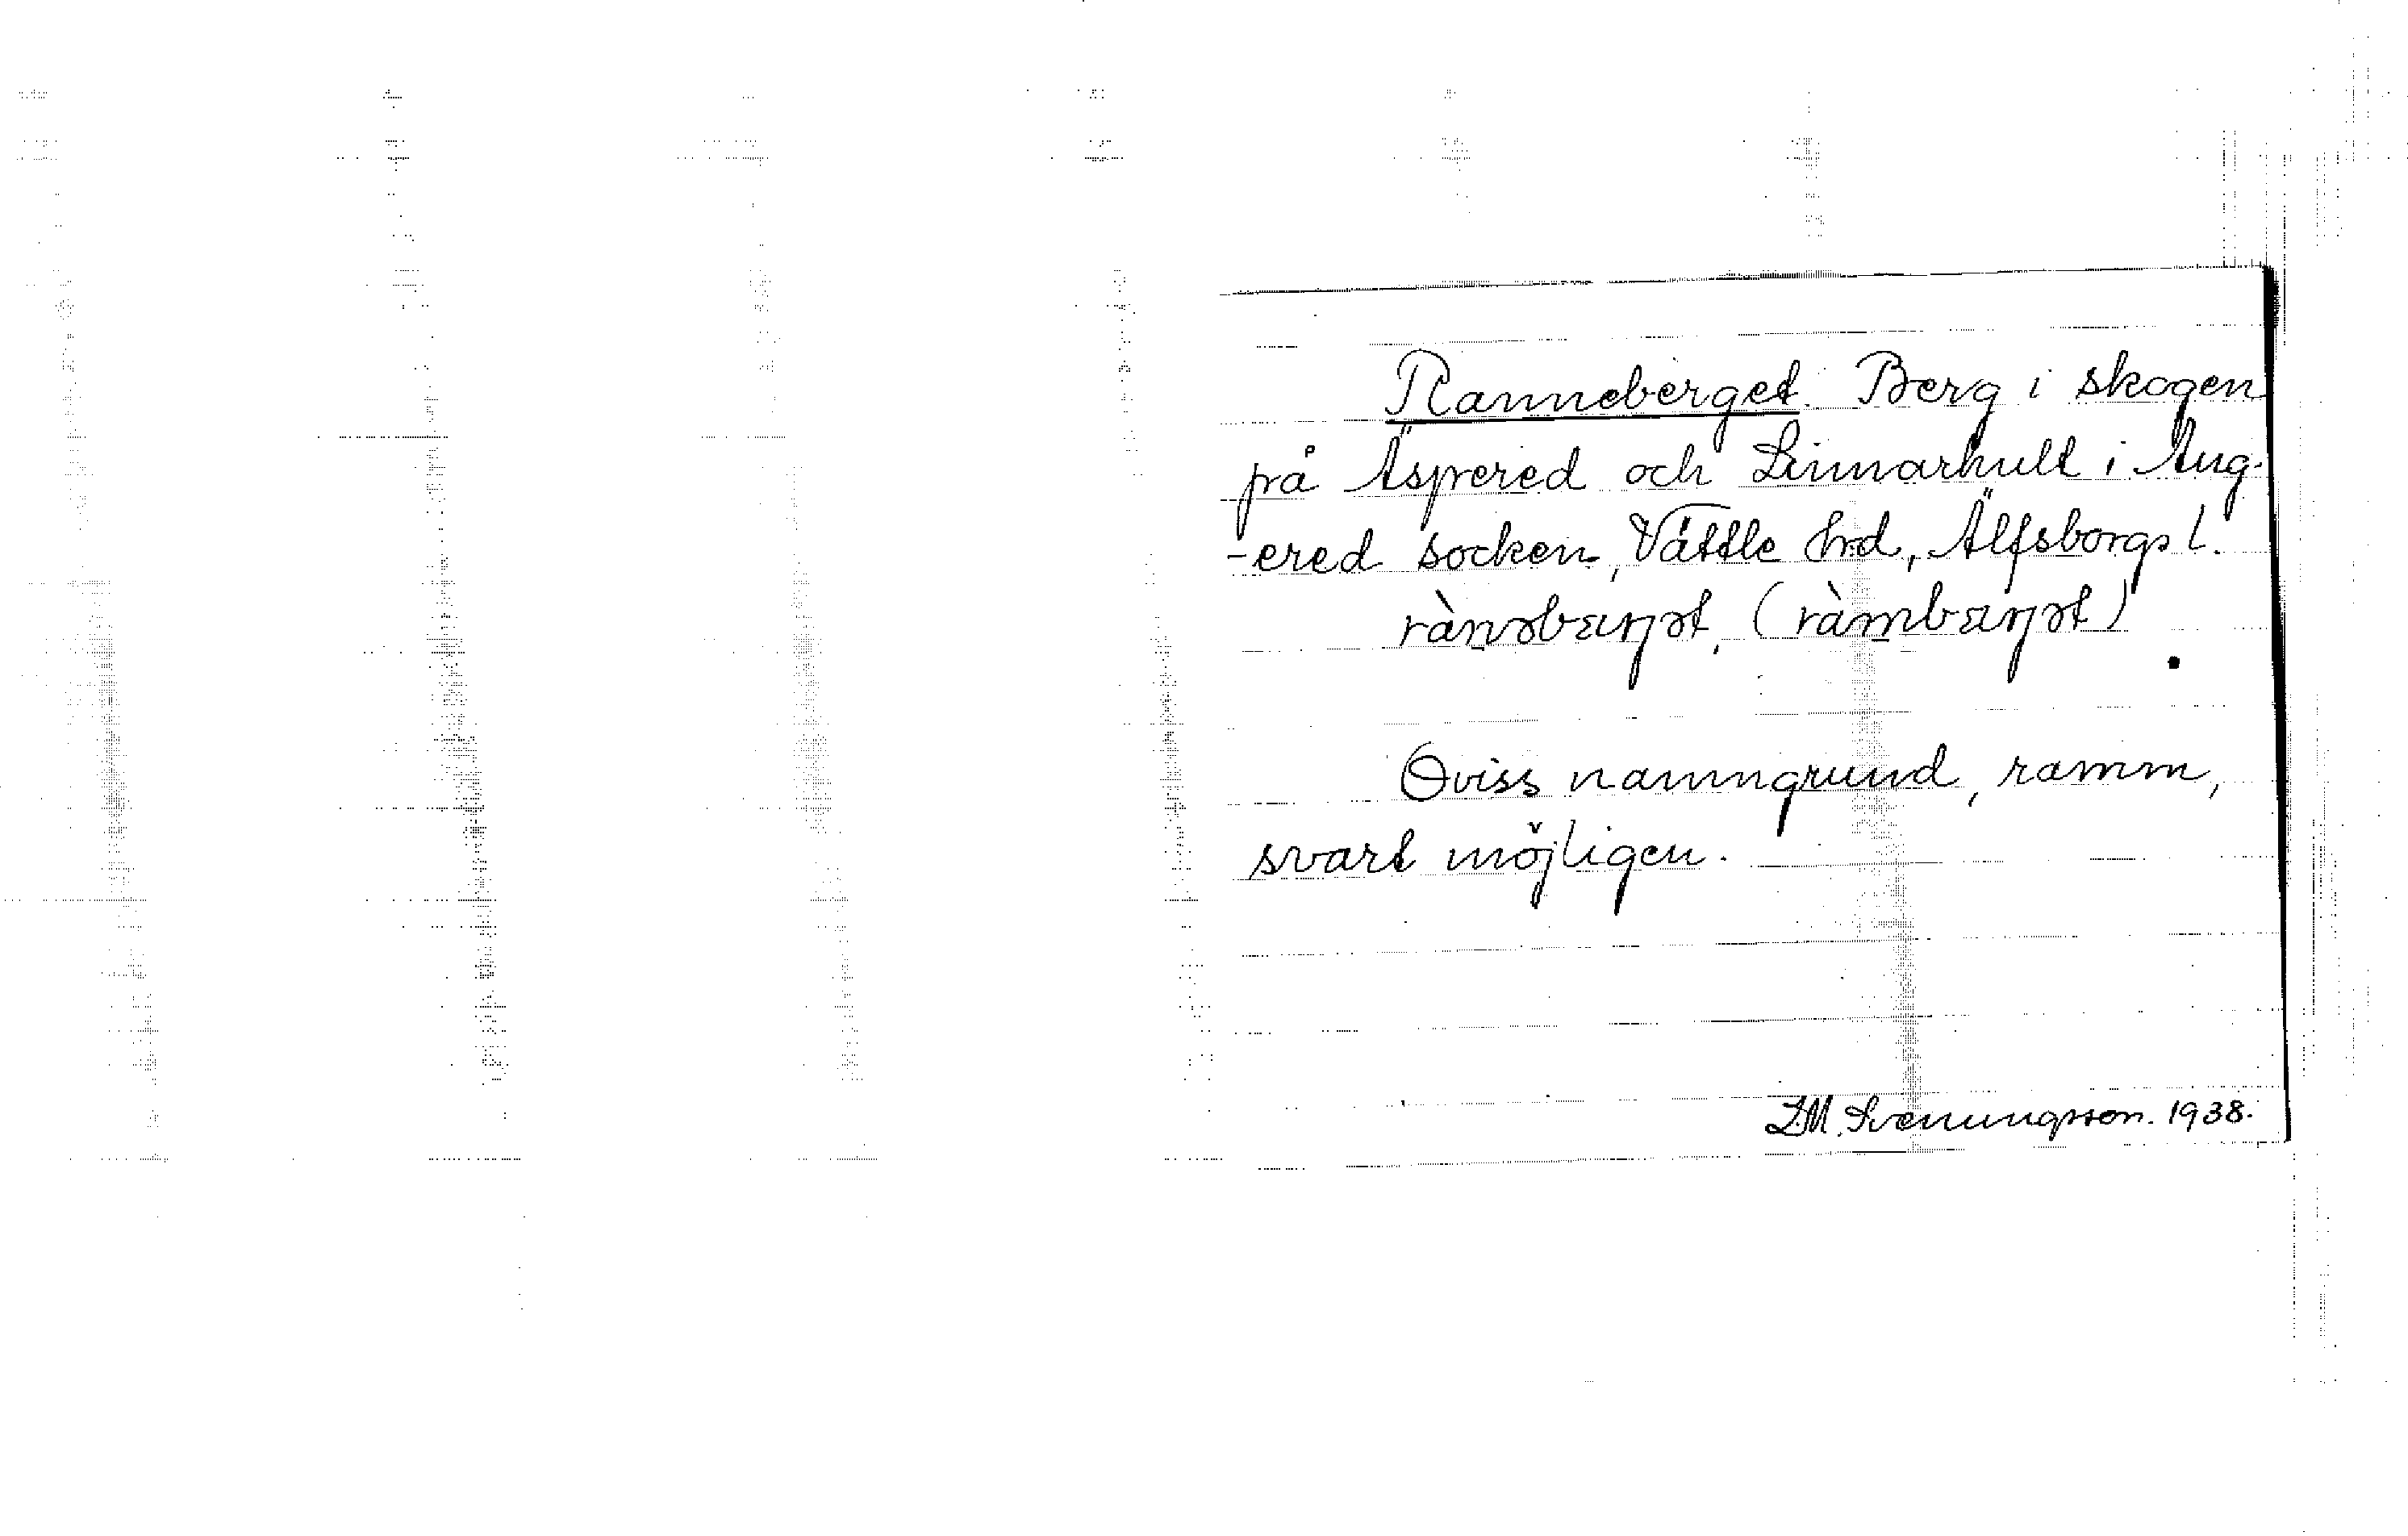 Ranneberget. Berg i skogen
på Äspered och Linnarhult i Ang-
-ered socken, Vättle hrd, Älfsborgs l.
rànəbærjət, (ràmbærjət)
Oviss namngrund, ramm,
svart möjligen.
L.M. Svenungsson. 1938.